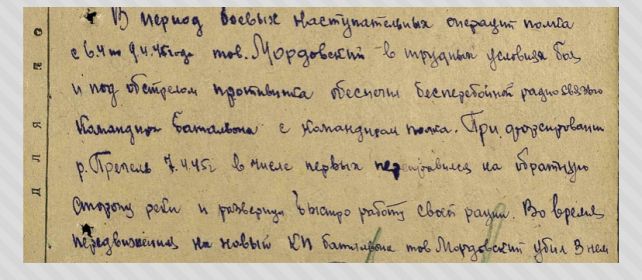 В период боевых наступательных операций полка
с 6.4 по 9.4.45 года тов. Мордовский в трудных условиях боя
и под обстрелом противника обеспечил бесперебойной радиосвязью
Командира батальона с командиром полка. При форсировании
р. Прегель 7.4.45г в числе первых переправился на обратную
сторону реки и развернул быстро работу своей рации. Во время
передвижения на новый КП батальона тов Мордовский убил 3 нем
ДЛЯ